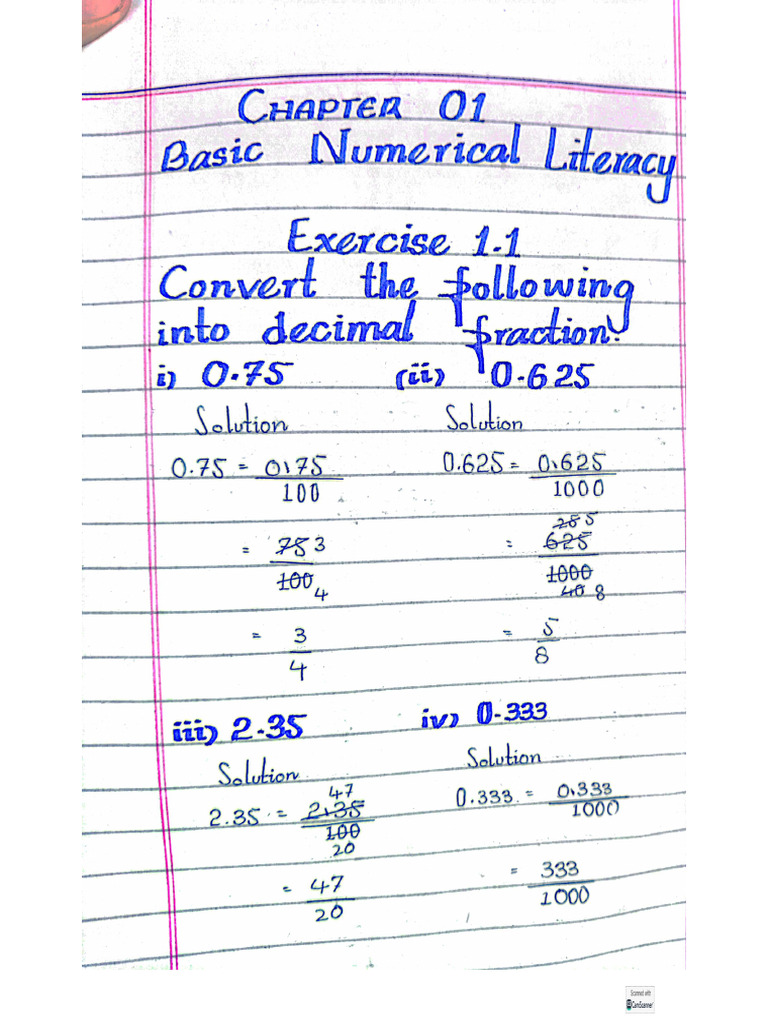 CHAPTER 01
Basic Numerical Literacy
Exercise 1.1
Convert the following
into decimal fraction.
i) 0.75 (ii) 0.625
Solution Solution
0.75 = 0.75/100 0.625 = 0.625/1000
= 75 3/100 4 = 25 5 625/1000 40 8
= 3/4 = 5/8
iii) 2.35 iv) 0.333
Solution Solution
2.35 = 47 2.35/100 20 0.333 = 0.333/1000
= 47/20 = 333/1000
Scanned with
CamScanner